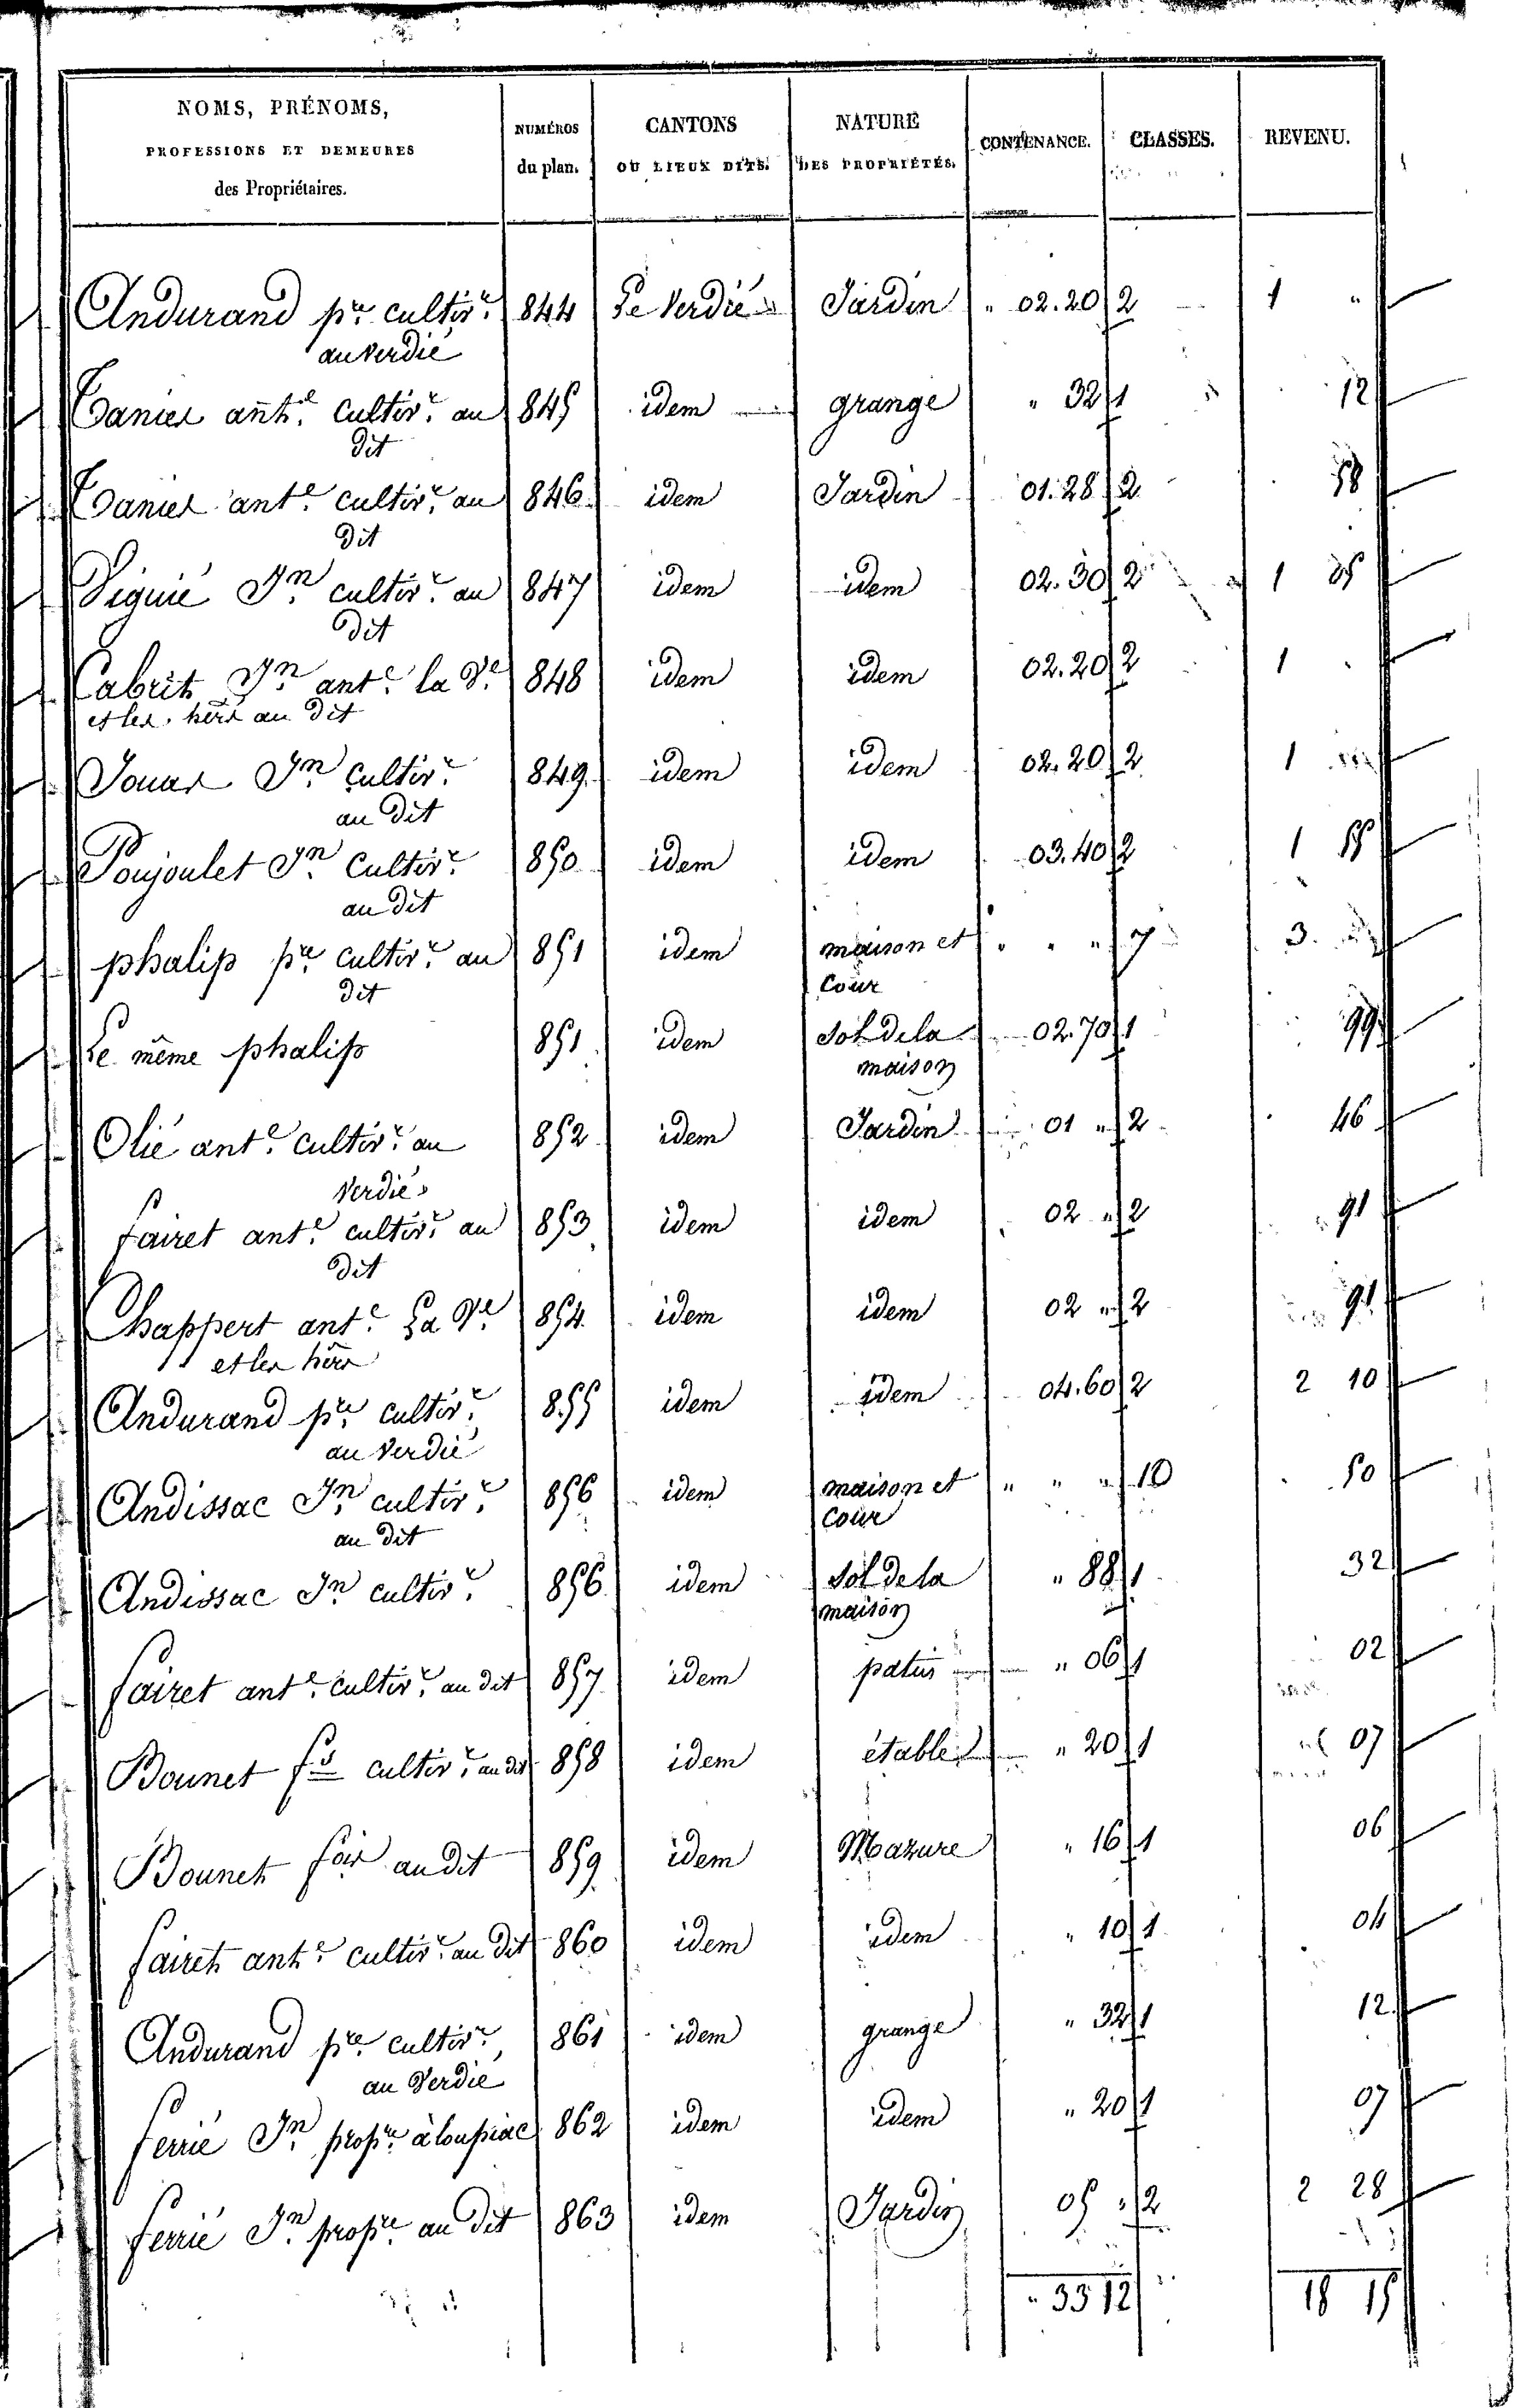 NOMS, PRÉNOMS,
PROFESSIONS ET DEMEURES
des Propriétaires.
NUMÉROS
du plan.
CANTONS
OU LIEUX DITS.
NATURE
DES PROPRIÉTÉS.
CONTENANCE.
CLASSES.
REVENU.
Andurand pre cultivr 844 Le Verdié Jardin " 02.20 2 1 "
au Verdié
Tanier ante cultivr au 845 idem grange " 32 1 12
dit
Tanier ante cultivr au 846 idem Jardin 01.28 2 58
dit
Viguié Jn cultivr au 847 idem idem 02.30 2 1 05
dit
Cabrit Jn ante la Ve 848 idem idem 02.20 2 1
et les hers au dit
Jouar Jn cultivr 849 idem idem 02.20 2 1
au dit
Poujoulet Jn cultivr 850 idem idem 03.40 2 1 55
au dit
phalip pre cultivr au 851 idem maison et " " " 7 3
dit cour
Le même phalip 851 idem sol de la 02.70 1 99
maison
Olié ante cultivr au 852 idem Jardin 01 " 2 46
Verdié
fairet ante cultivr au 853 idem idem 02 " 2 91
dit
Chappert ante La Ve 854 idem idem 02 " 2 91
et les hers
Andurand pre cultivr 855 idem idem 04.60 2 2 10
au Verdié
Andissac Jn cultivr 856 idem maison et " " " 10 50
au dit cour
Andissac Jn cultivr 856 idem sol de la " 88 1 32
maison
fairet ante cultivr au dit 857 idem patus " 06 1 02
Bounet fs cultivr au dit 858 idem étable " 20 1 07
Bounet fois au dit 859 idem Mazure " 16 1 06
fairet ante cultivr au dit 860 idem idem " 10 1 04
Andurand pre cultivr 861 idem grange " 32 1 12
au Verdié
ferrié Jn propre à loupiac 862 idem idem " 20 1 07
ferrié Jn propre au dit 863 idem Jardin 05 " 2 2 28
" 33 12 18 15